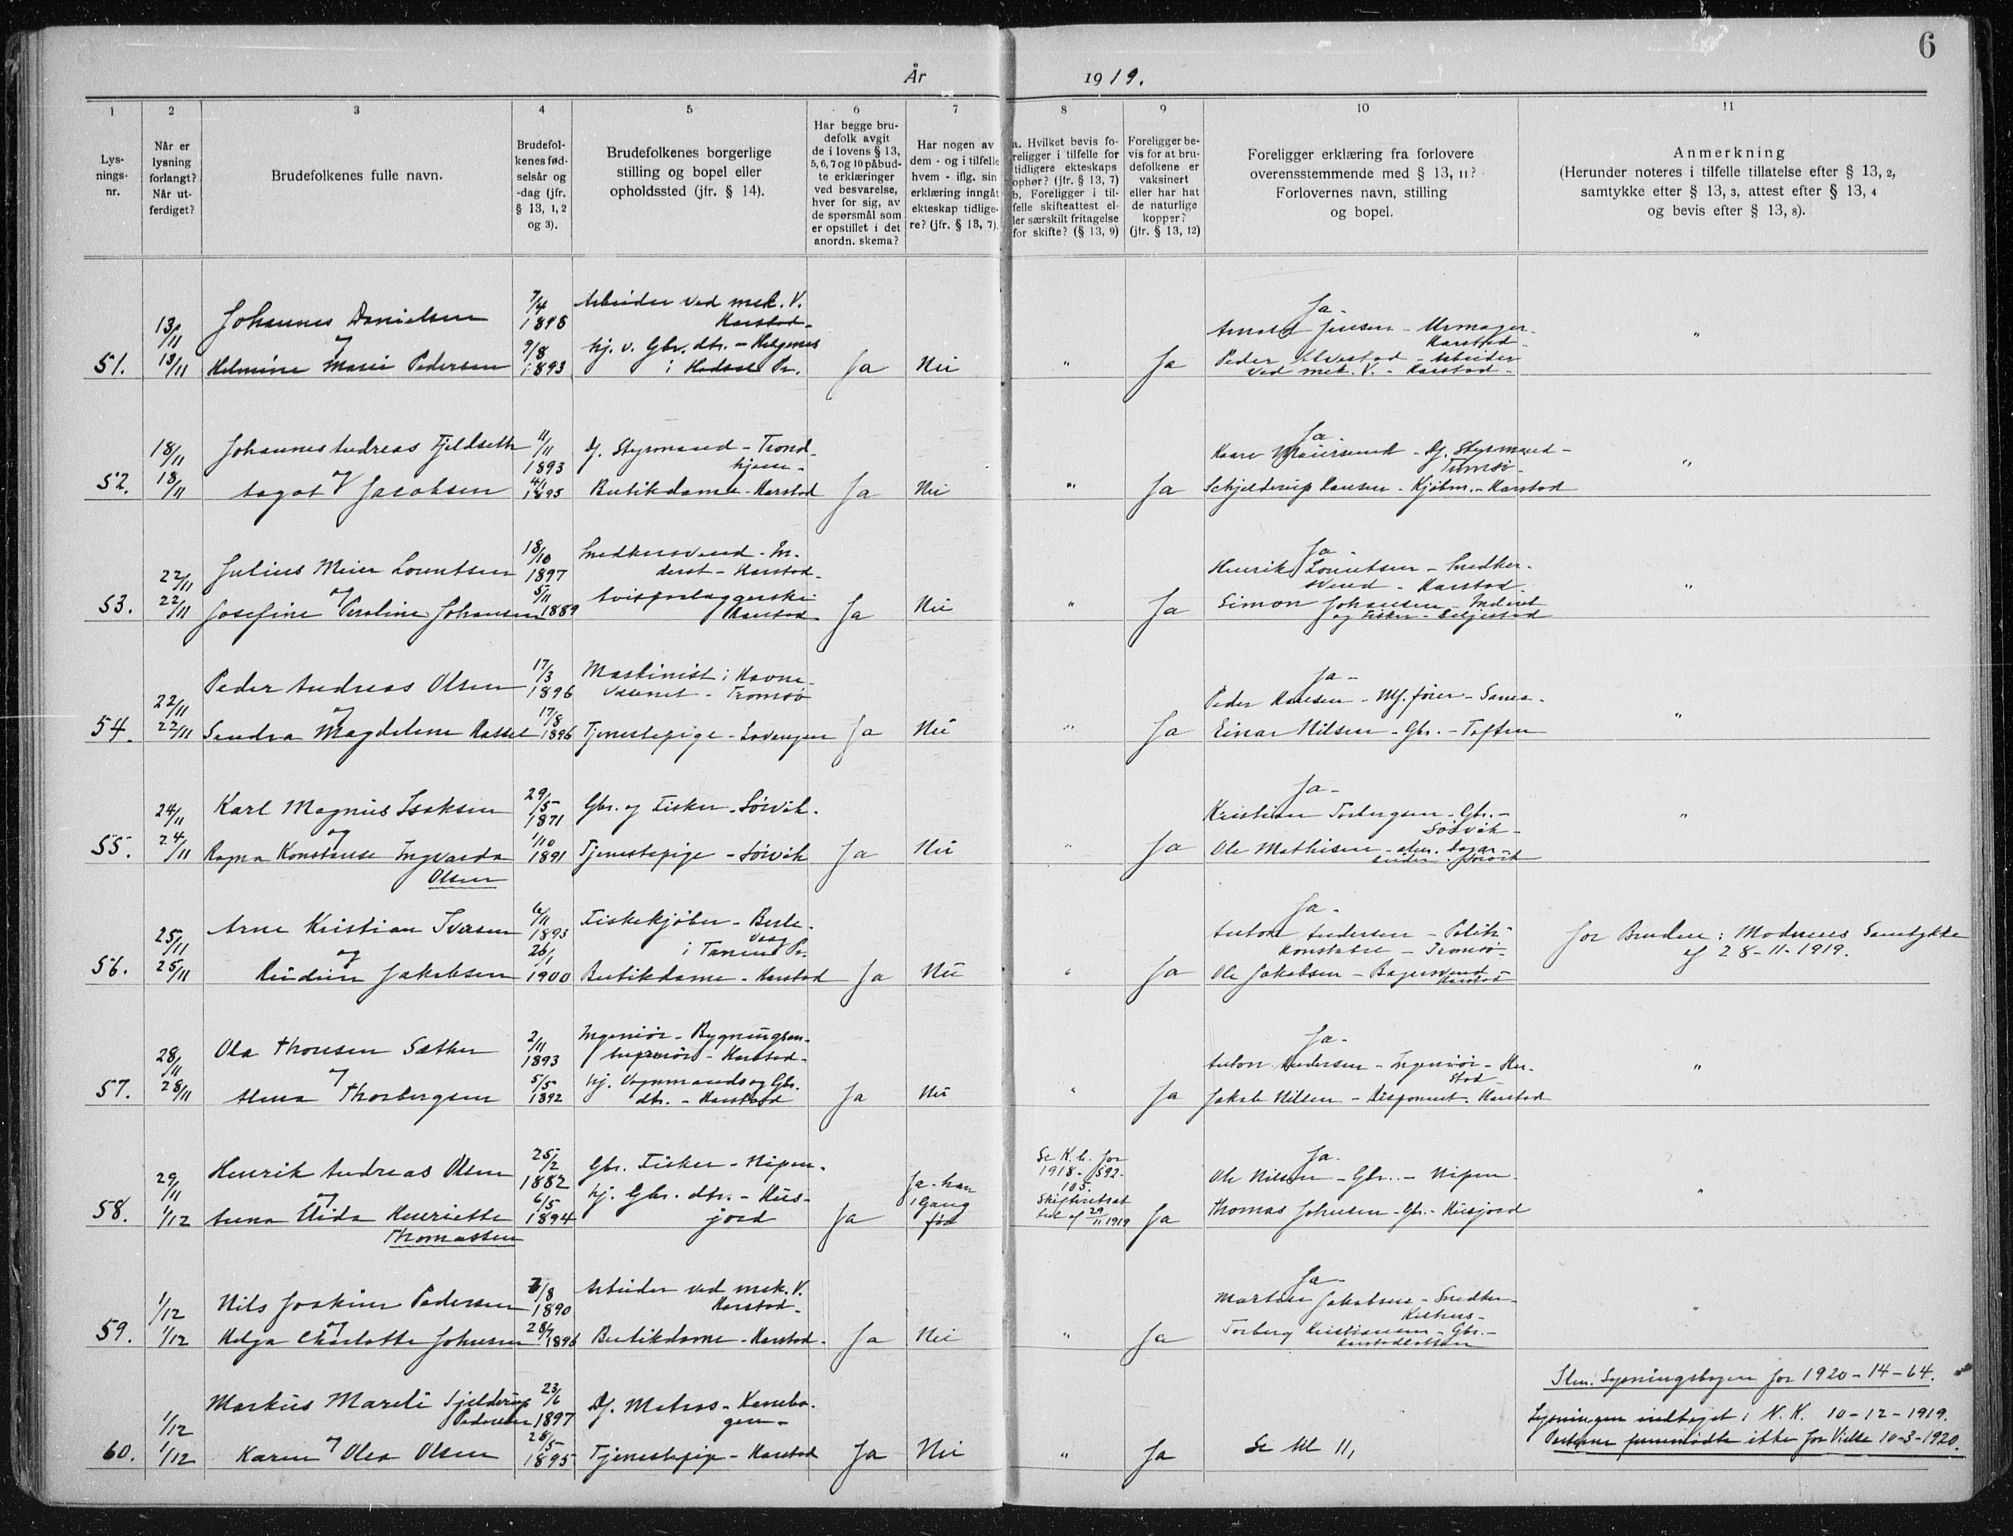 6
År 1919.
1 2 3 4 5 6 7 8 9 10 11
Lys-
nings-
nr.
Når er
lysning
forlangt?
Når ut-
ferdiget?
Brudefolkenes fulle navn.
Brudefol-
kenes fød-
selsår og
-dag (jfr.
§ 13, 1, 2
og 3).
Brudefolkenes borgerlige
stilling og bopel eller
opholdssted (jfr. § 14).
Har begge bru-
defolk avgit
de i lovens § 13,
5, 6, 7 og 10 påbud-
te erklæringer
ved besvarelse,
hver for sig, av
de spørsmål som
er opstillet i det
anordn. skema?
Har nogen av
dem - og i tilfelle
hvem - iflg. sin
erklæring inngåt
ekteskap tidlige-
re? (jfr. § 13, 7).
a. Hvilket bevis fo-
religger i tilfelle for
tidligere ekteskaps
ophør? (jfr. § 13, 7)
b. Foreligger i til-
felle skifteattest el-
ler særskilt fritagelse
for skifte? (§ 13, 9)
Foreligger be-
vis for at bru-
defolkene er
vaksinert
eller har hat
de naturlige
kopper?
(jfr. § 13, 12)
Foreligger erklæring fra forlovere
overensstemmende med § 13, 11?
Forlovernes navn, stilling
og bopel.
Anmerkning
(Herunder noteres i tilfelle tillatelse efter § 13, 2,
samtykke efter § 13, 3, attest efter § 13, 4
og bevis efter § 13, 8).
51. 13/11 13/11
Johannes Danielsen
og
Helmine Marie Pedersen
7/4 1898
9/8 1893
Arbeider ved mek. V.
Harstad.
hj. v. Gbr. dtr. - Helgenes
i Hadsel Pr.
Ja Nei " Ja
Ja -
Arnold Jensen - Urmager -
Harstad -
Peder - Arbeider
ved mek. V. - Harstad - "
52. 18/11 18/11
Johannes Andreas Fjeldseth
og
Aagot Jacobsen
11/11 1893
4/1 1895
Df. Styrmand - Trond-
hjem -
Butikdame - Harstad
Ja Nei " Ja
Ja -
Kaare - Df. Styrmand -
Tromsø -
Schjelderup Hansen - Kjøbm. - Harstad "
53. 22/11 22/11
Julius Meier Lorentsen
og
Josefine Peroline Johansen
18/10 1897
5/11 1889
Snedkersvend - In-
derst - Harstad -
Avispælæggerske
Harstad
Ja Nei " Ja
Ja
Henrik Lorentsen - Snedker-
svend - Harstad -
Simon Johansen - Inderst
og Fisker - Seljestad "
54. 22/11 22/11
Peder Andreas Olsen
og
Sandra Magdalene Hassel
17/3 1896
17/8 1896
Maskinist i Havne-
væsenet - Tromsø
Tjenestepige - Lavangen
Ja Nei " Ja
Ja -
Peder Hansen - Mf. fører - Sama -
Einar Nilsen - Gbr. - Toften "
55. 24/11 24/11
Karl Magnus Isaksen
og
Ragna Konstanse Ingvarda
Olsen
29/5 1871
1/10 1891
Gbr. og Fisker - Sørvik.
Tjenestepige - Sørvik
Ja Nei " Ja
Ja -
Kristian Torbergsen - Gbr. -
Sørvik -
Ole Mathisen - alm. dagar-
beider. Sørvik "
56. 25/11 25/11
Arne Kristian Iversen
og
Jakobsen
6/11 1893
26/1 1900
Fiskekjøber - Berle-
vaag
i Tanen Pr.
Butikdame - Harstad
Ja Nei " Ja
Ja -
Anton Andersen - Politi-
konstabel - Tromsø -
Ole Jakobsen - Bagersvend
Harstad
for Bruden: Moderens Samtykke
af 28-11-1919.
57. 28/11 28/11
Ola Thonsen Sæther
og
Alma Thorbergsen
2/11 1893
5/5 1892
Ingeniør - Bygningsin-
geniør - Harstad -
hj. Vognmands og Gbr.
dtr. - Harstad
Ja Nei " Ja
Ja -
Anton Andersen - Ingeniør - Har-
stad -
Jakob Nilsen - Disponent - Harstad "
58. 29/11 1/12
Henrik Andreas Olsen
og
Anna Alida Henriette
Thomassen
25/2 1882
6/5 1894
Gbr. Fisker - Nipen.
hj. Gbr. dtr. - Hus-
jord
Ja
Ja - han
1 Gang
før
Se K. b. for
1918 - S92 -
105.
Skifteretsat-
test af 29/11 1919
Ja
Ja -
Ole Nilsen - Gbr. - Nipen -
Thomas Johnsen - Gbr. - Husjord "
59. 1/12 1/12
Nils Joakim Pedersen
og
Helga Charlotte Johnsen
7/8 1890
28/7 1896
Arbeider ved mek. V.
Harstad -
Butikdame - Harstad -
Ja Nei " Ja
Ja -
Martin Jakobsen - Snedker -
Kilhus -
Torberg Kristiansen - Gbr. -
Harstadbotten "
60. 1/12 1/12
Markus Mareli Sjelderup
Pedersen
og
Karen Olea Olsen
23/6 1897
28/5 1895
Df. Matros - Kanebo-
gen -
Tjenestepige - Harstad
Ja Nei " Ja
Se til 11,
Sml. Lysningsbogen for 1920-14-64.
Lysningen indtaget i N. K. 10-12-1919.
Parterne fremmødte ikke for Vielse 10-3-1920.